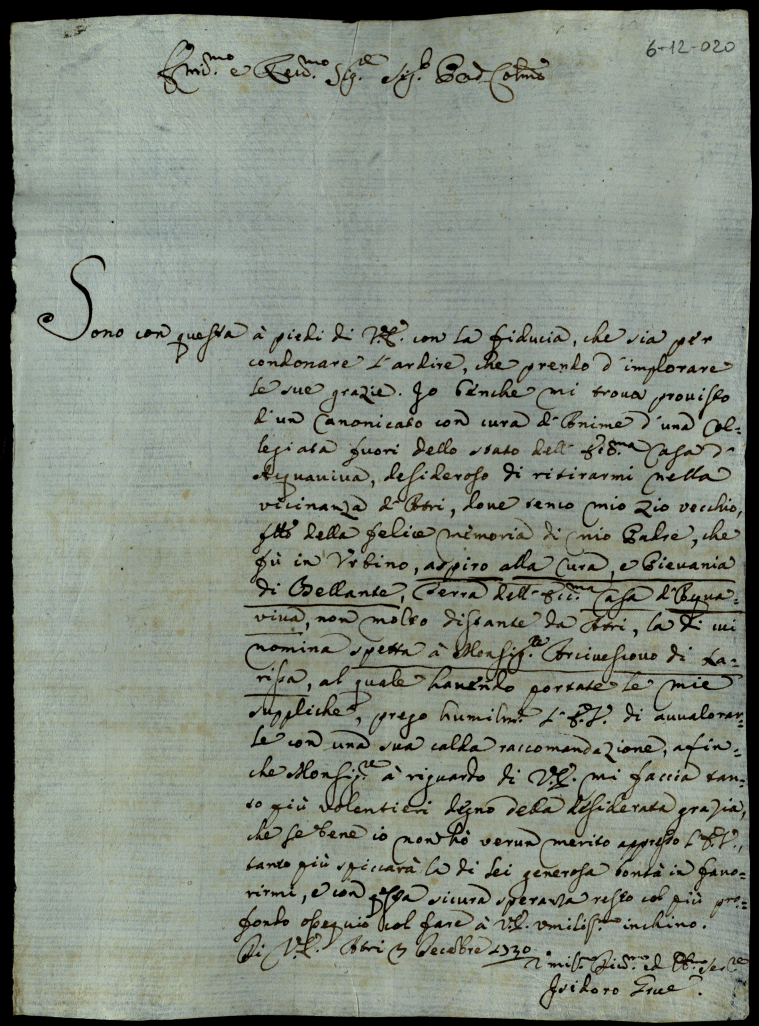 6-12-020
Em.mo e Rev.mo Sig.re Sig.r Pad. Colmo
Sono con questa à piedi di V.E. con la fiducia, che sia per
condonare l'ardire, che prendo d'implorare
le sue grazie. Io benche mi trova provisto
d'un Canonicato con cura d'Anime d'una Col-
legiata fuori dello stato dell' Ecc.ma Casa d'
Acquaviva, desideroso di ritirarmi nella
vicinanza d'Atri, dove tengo mio Zio vecchio,
f͠tto della felice memoria di mio Padre, che
fù in Urbino, aspiro alla Cura, e Pievania
di Bellante, Terra dell' Ecc.ma Casa d'Acqua-
viva, non molto distante da Atri, la di cui
nomina spetta à Monsig.re Arcivescovo di La-
rissa, al quale havendo portate le mie
suppliche, prego humilm. l'E.V. di avvalorar-
le con una sua calda raccomandazione, affin-
che Monsig.re à riguardo di V.E. mi faccia tan-
to più volentieri degno della desiderata grazia,
che se bene io non hò verun merito appresso l'E.V.,
tanto più spiccarà la di lei generosa bontà in favo-
rirmi, e con questa sicura speranza resto col più pro-
fondo ossequio col fare à V.E. umiliss.mo inchino.
Di V.E. Atri 3 Decebre 1730
Umils.mo Div.mo ed Obb.mo Ser.re
Isidoro Grue